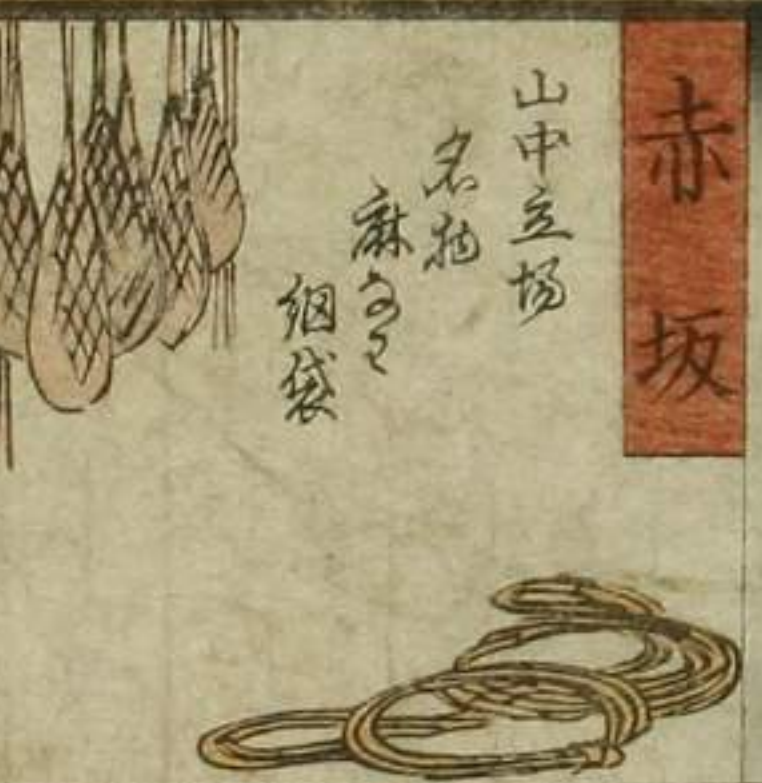 赤坂
山中立場
名物
麻なわ
網袋